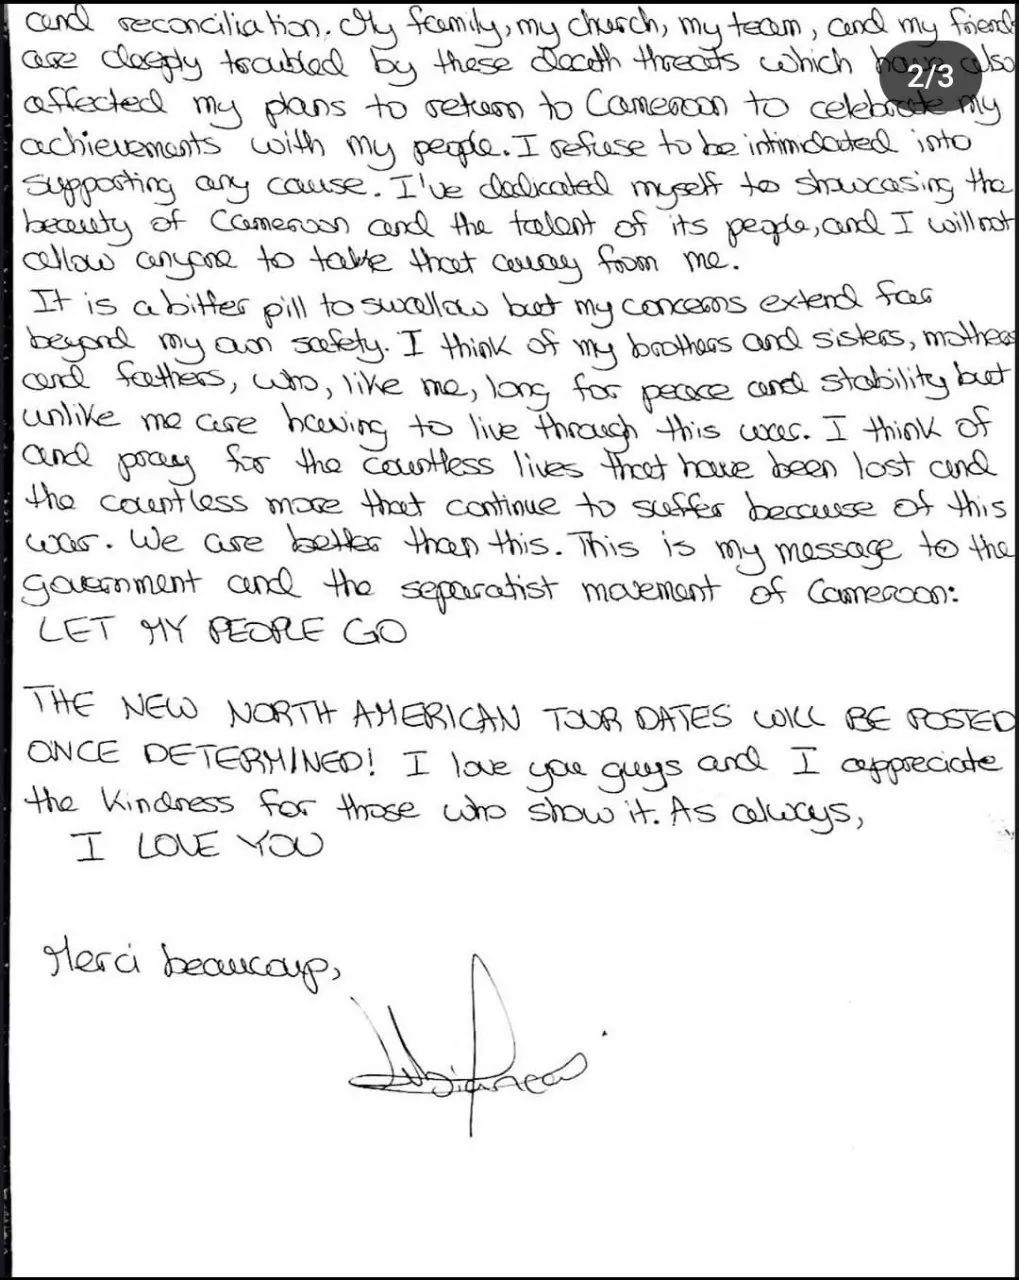 and reconciliation. My family, my church, my team, and my friends
are deeply troubled by these death threats which have also
2/3
affected my plans to return to Cameroon to celebrate my
achievements with my people. I refuse to be intimidated into
supporting any cause. I've dedicated myself to showcasing the
beauty of Cameroon and the talent of its people, and I will not
allow anyone to take that away from me.
It is a bitter pill to swallow but my concerns extend far
beyond my own safety. I think of my brothers and sisters, mothers
and fathers, who, like me, long for peace and stability but
unlike me are having to live through this war. I think of
and pray for the countless lives that have been lost and
the countless more that continue to suffer because of this
war. We are better than this. This is my message to the
government and the separatist movement of Cameroon:
LET MY PEOPLE GO
THE NEW NORTH AMERICAN TOUR DATES WILL BE POSTED
ONCE DETERMINED! I love you guys and I appreciate
the kindness for those who show it. As always,
I LOVE YOU
Merci beaucoup,